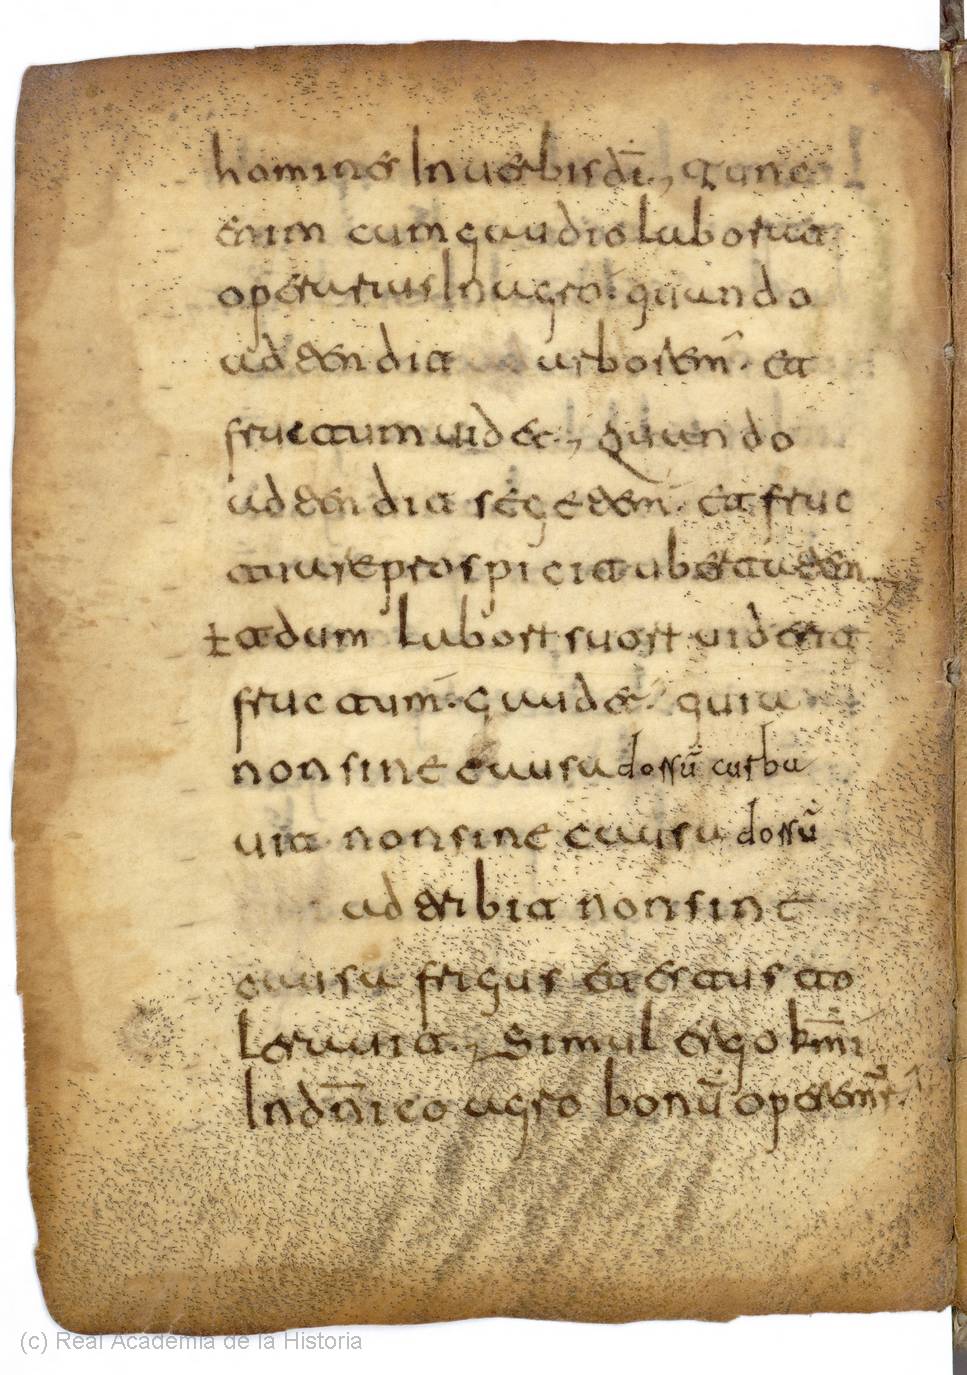 homines In uerbis dī, tunc
enim cum gaudio laborat
operarius In agro. quando
adtendit arborem. et
fructum uidet, quando
adtendit segetem. et fruc
tuu reprospicit ubertatem.
et dum laboris suos uidet
fructum. gaudet. quia
non sine causa dossū curba
uit. non sine causa dossū
adtribit non sine
causa frigus et estus to
lerauit, Simul ergo kmī
In dnico agro bonū operemr̄
(c) Real Academia de la Historia